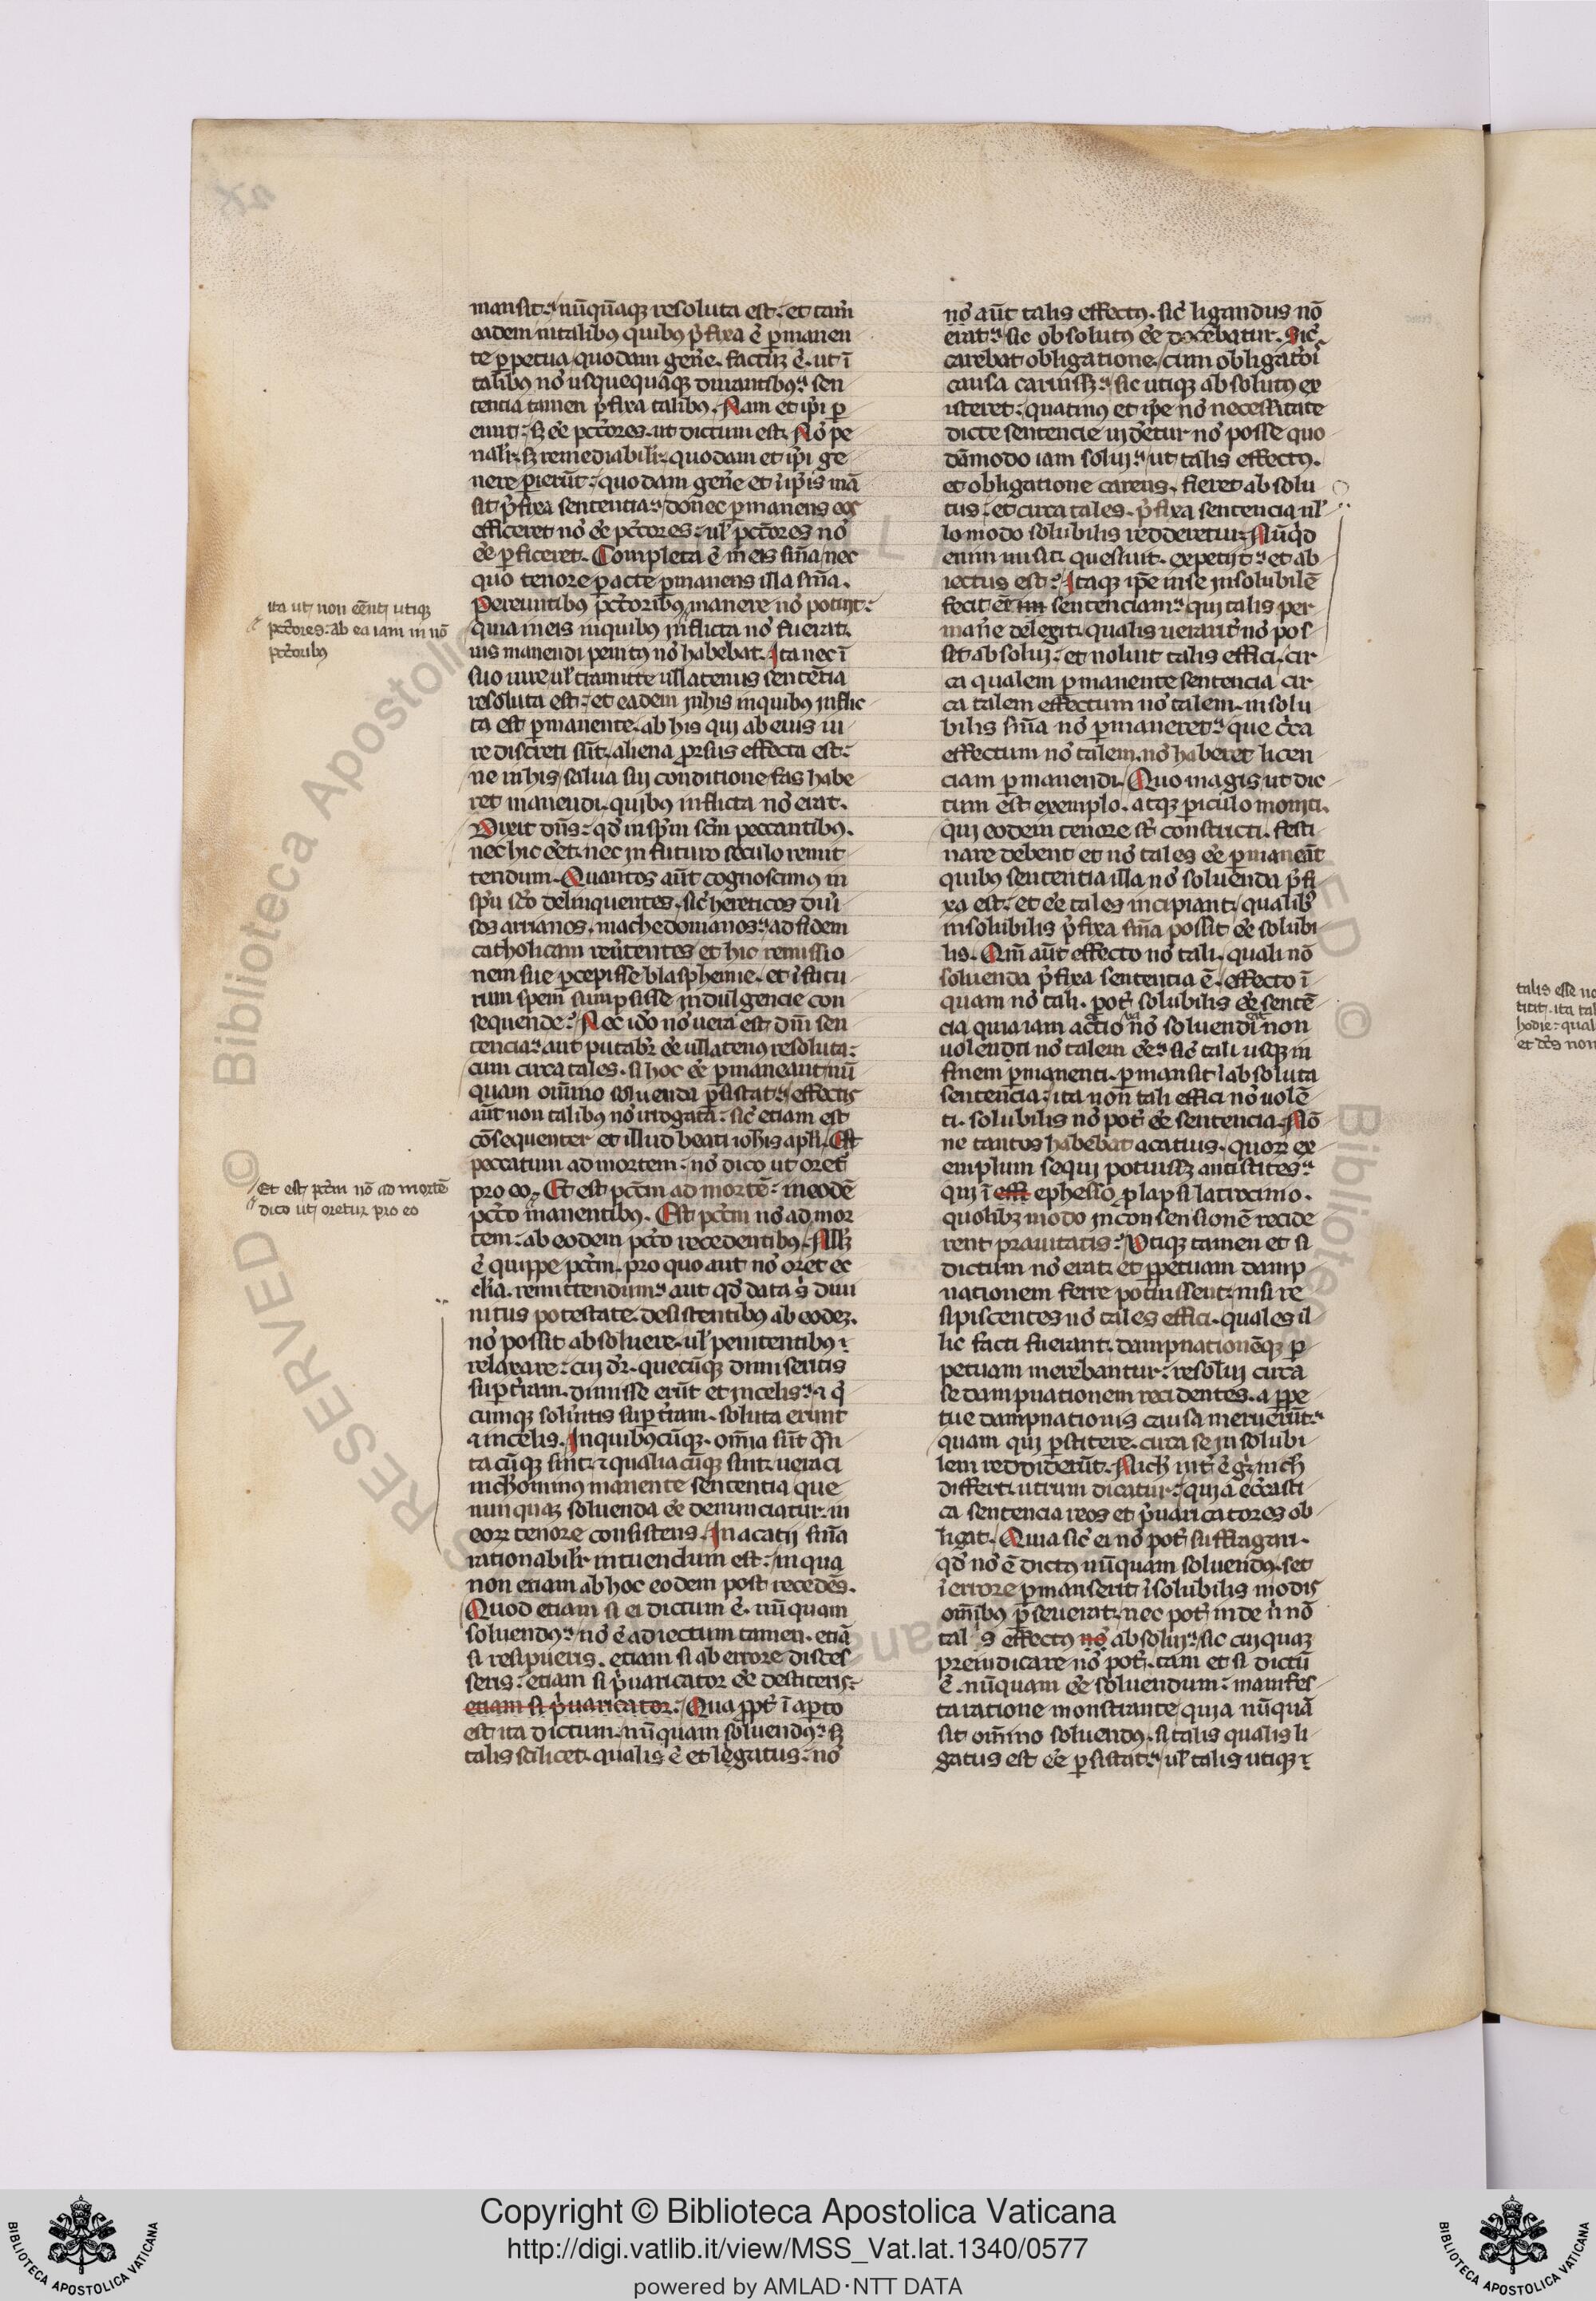 mansit: nūquāq; resoluta est: et tam̄
eadem in talibꝰ quibꝰ p̄fixa ē ꝑmanen
te ꝑpetua quodam gen̄e. factuꝫ ē. ut ī
talibꝰ nō usquequaq; durantibꝰ: sen
tencia tamen p̄fixa talibꝰ. Nam et ip̄i ꝑ
eunt: sꝫ eē pctōres. ut dictum est. Nō pe
nalr̄. sꝫ remediabilr̄. quodam et ip̄i ge
nere perierūt: quodam gen̄e et ī ip̄is mā
sit p̄fixa sententia: donec ꝑmanens eos
efficeret nō eē pctōres: ul̄ pctōres nō
eē ꝑficeret. Completa ē in eis sn̄ia nec
quo tenore ꝑ acte ꝑmanens illa sn̄ia.
Pereuntibꝰ pctōribꝰ manere nō potuit:
quia in eis in quibꝰ inflicta nō fuerat.
uis manendi penitꝰ nō habebat. Ita nec ī
suo iure ul̄ tramitte ullatenus sentētia
resoluta est: et eadem in his in quibꝰ inflic
ta est ꝑmanente. ab his qui ab eius iu
re discreti sūt. aliena prorsus effecta est:
ne in his salua sui conditione fas habe
ret manendi. quibꝰ inflicta nō erat.
Dixit dn̄s: qd̄ in sp̄m sc̄m peccantibꝰ.
nec hic eēt. nec in futuro seculo remit
tendum. Quantos aūt cognoscimꝰ in
sp̄u sc̄o delinquentes. sic̄ hereticos diu̇
sos arrianos. machedonianos: ad fidem
catholicam reūtentes et hic remissio
nem sue ꝑcepisse blasphemie. et ī futu
rum spem sumpsisse indulgencie con
sequende: Nec ido nō uera est dn̄i sen
tencia: aut putabr̄ eē ullatenꝰ resoluta:
cum circa tales. si hoc eē ꝑmaneant nū
quam om̄ino soluenda ꝑsistat: effectis
aūt non talibꝰ nō irrogata: sic̄ etiam est
cōsequenter et illud beati ioh̄is apl̄i. Est
peccatum ad mortem: nō dico ut oret̄
pro eo. Et est pctm̄ ad mortē: in eodē
pctō manentibꝰ. Est pctm̄ nō ad mor
tem: ab eodem pctō recedentibꝰ. Null̄
ē quippe pctm̄. pro quo aut nō oret ec
cl̄ia. remittendum: aut qd̄ data s̄ diui
nitus potestate. desistentibꝰ ab eodeꝫ.
nō possit absoluere. ul̄ penitentibꝰ
relaxare: cui dr̄. quecūq; dimiseritis
suꝑ t̄ram. dimisse erūt et in celis: ⁊ q̄
cumq; solūitis suꝑ t̄ram. soluta erunt
⁊ in celis. In quibꝰcūq;. om̄ia sūt qn̄
ta cūq; sint. ⁊ qualia cūq; sint. ueraci
nichominꝰ manente sententia que
nunquaꝫ soluenda eē denunciatur. in
eoꝝ tenore consistens. In acatij sn̄ia
rationabilr̄ intuendum est: in qua
non etiam ab hoc eodem post recedēs.
Quod etiam si ei dictum ē. nūquam
soluendꝰ: nō ē adiectum tamen. etiā
si resipueris. etiam si ab errore disces
seris: etiam si p̄uaricator eē destiteris:
etiam si p̄uaricator. Qua ꝓpt̄ ī aꝑto
est ita dictum. nūquam soluendꝰ: sꝫ
talis scilicet. qualis ē et legatus: nō
ita ut non eēnti utiq;
pctōres: ab ea iam in nō
pctōribꝰ
Et est pctm̄ nō ad mortē
dico ut oretur pro eo
nō aūt talis effectꝰ. sic̄ ligandus nō
erat: sic obsolutꝰ eē docebatur. Sic̄
carebat obligatione. cum obligatōi
causa caruissꝫ: sic utiq; absolutꝰ ex
isteret: quatinꝰ et ip̄e nō necessitate
dicte sentencie uidetur nō posse quo
dāmodo iam solui: ut talis effectꝰ.
et obligatione carens. fieret absolu
tus: et circa tales. p̄fixa sentencia ul̄
lo modo solubilis redderetur. Nūqd̄
enim misit. quesiuit. expetijt: et ab
iectus est: Itaq; ip̄e in se insolubilē
fecit eē sentenciam: qui talis per
man̄e delegit. qualis uerant̄ nō pos
sit absolui: et noluit talis effici. cir
ca qualem ꝑmanente sentencia cir
ca talem effectum nō talem. insolu
bilis sn̄ia nō ꝑmaneret: que cc̄a
effectum nō talem. nō haberet licen
ciam ꝑmanendi. Quo magis ut dic
tum est exemplo. atq; ꝑiculo moniti.
qui eodem tenore st̄ constricti. festi
nare debent et nō tales eē ꝑmaneāt
quibꝰ sententia illa nō soluenda p̄fi
xa est: et eē tales incipiant. qualibꝰ
insolubilis p̄fixa sn̄ia possit eē solubi
lis. Qm̄ aūt effecto nō tali. quali nō
soluenda p̄fixa sententia ē. effecto ī
quam nō tali. pot̄ solubilis eē sentē
cia quia iam actio nō soluendi non
uolenti nō talem eē: sic̄ tali usq; in
finem ꝑmanenti. ꝑmansit īabsoluta
sentencia: ita non tali effici nō uolē
ti. solubilis nō pot̄ eē sentencia. Nō
ne tantos habebat acatius. quoꝝ ex
emplum sequi potuissꝫ antistites:
qui ī eff ephesīo ꝑlapsi latrocinio.
quolibꝫ modo in consensionē recide
rent prauitatis: Utiq; tamen et si
dictum nō erat. et ꝑpetuam damp
nationem ferre potuissent. nisi re
sipiscentes nō tales effici. quales il
lic facti fuerant. dampnationēq; ꝑ
petuam merebantur: resolui circa
se dampnationem recidentes. a ꝑpe
tue dampnationis causa meruerūt:
quam qui ꝑstitere. circa se insolubi
lem reddiderūt. Nich̄ int̄ ē gͦ. nich̄
differt. utrum dicatur: quia eccl̄asti
ca sentencia reos et p̄uaricatores ob
ligat. Quia sic̄ ei nō pot̄ suffragari.
qd̄ nō ē dictꝰ nūquam soluendꝰ. set
ī errore ꝑmanserit īsolubilis modis
om̄ibꝰ ꝑseuerat. nec pot̄ inde n̄ nō
talis effectꝰ nō absolui: sic cuiquaꝫ
preiudicare nō pot̄. tam et si dictū
ē. nūquam eē soluendum: manifes
ta ratione monstrante. quia nūquā
sit om̄ino soluendꝰ. si talis qualis li
gatus est eē ꝑsistat: ul̄ talis utiq;
talis esse
titit. ita tal
hodie: qual
et d̄cs non
Copyright © Biblioteca Apostolica Vaticana
http://digi.vatlib.it/view/MSS_Vat.lat.1340/0577
powered by AMLAD·NTT DATA
BIBLIOTECA APOSTOLICA VATICANA
BIBLIOTECA APOSTOLICA VATICANA